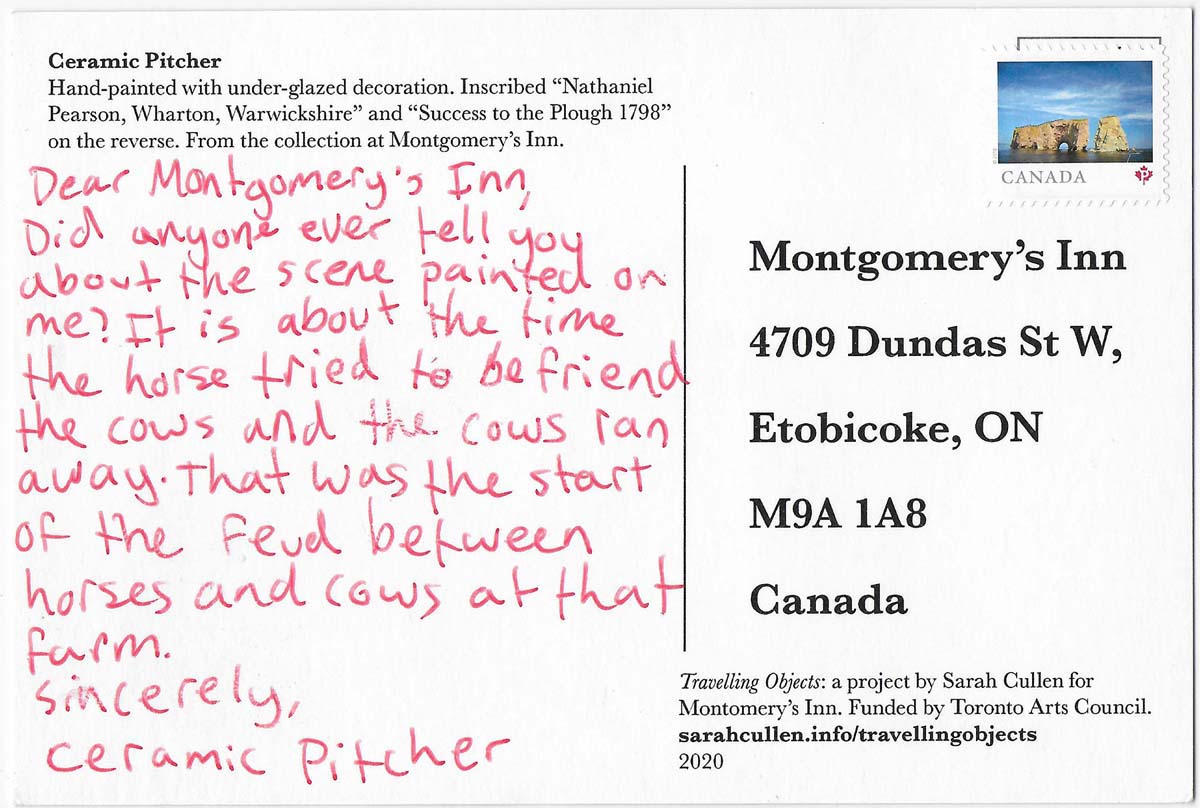 Ceramic Pitcher
Hand-painted with under-glazed decoration. Inscribed “Nathaniel
Pearson, Wharton, Warwickshire” and “Success to the Plough 1798”
on the reverse. From the collection at Montgomery’s Inn.
Dear Montgomery's Inn,
Did anyone ever tell you
about the scene painted on
me? It is about the time
the horse tried to befriend
the cows and the cows ran
away. That was the start
of the feud between
horses and cows at that
farm.
Sincerely,
Ceramic Pitcher
CANADA
P
Montgomery’s Inn
4709 Dundas St W,
Etobicoke, ON
M9A 1A8
Canada
Travelling Objects: a project by Sarah Cullen for
Montomery’s Inn. Funded by Toronto Arts Council.
sarahcullen.info/travellingobjects
2020